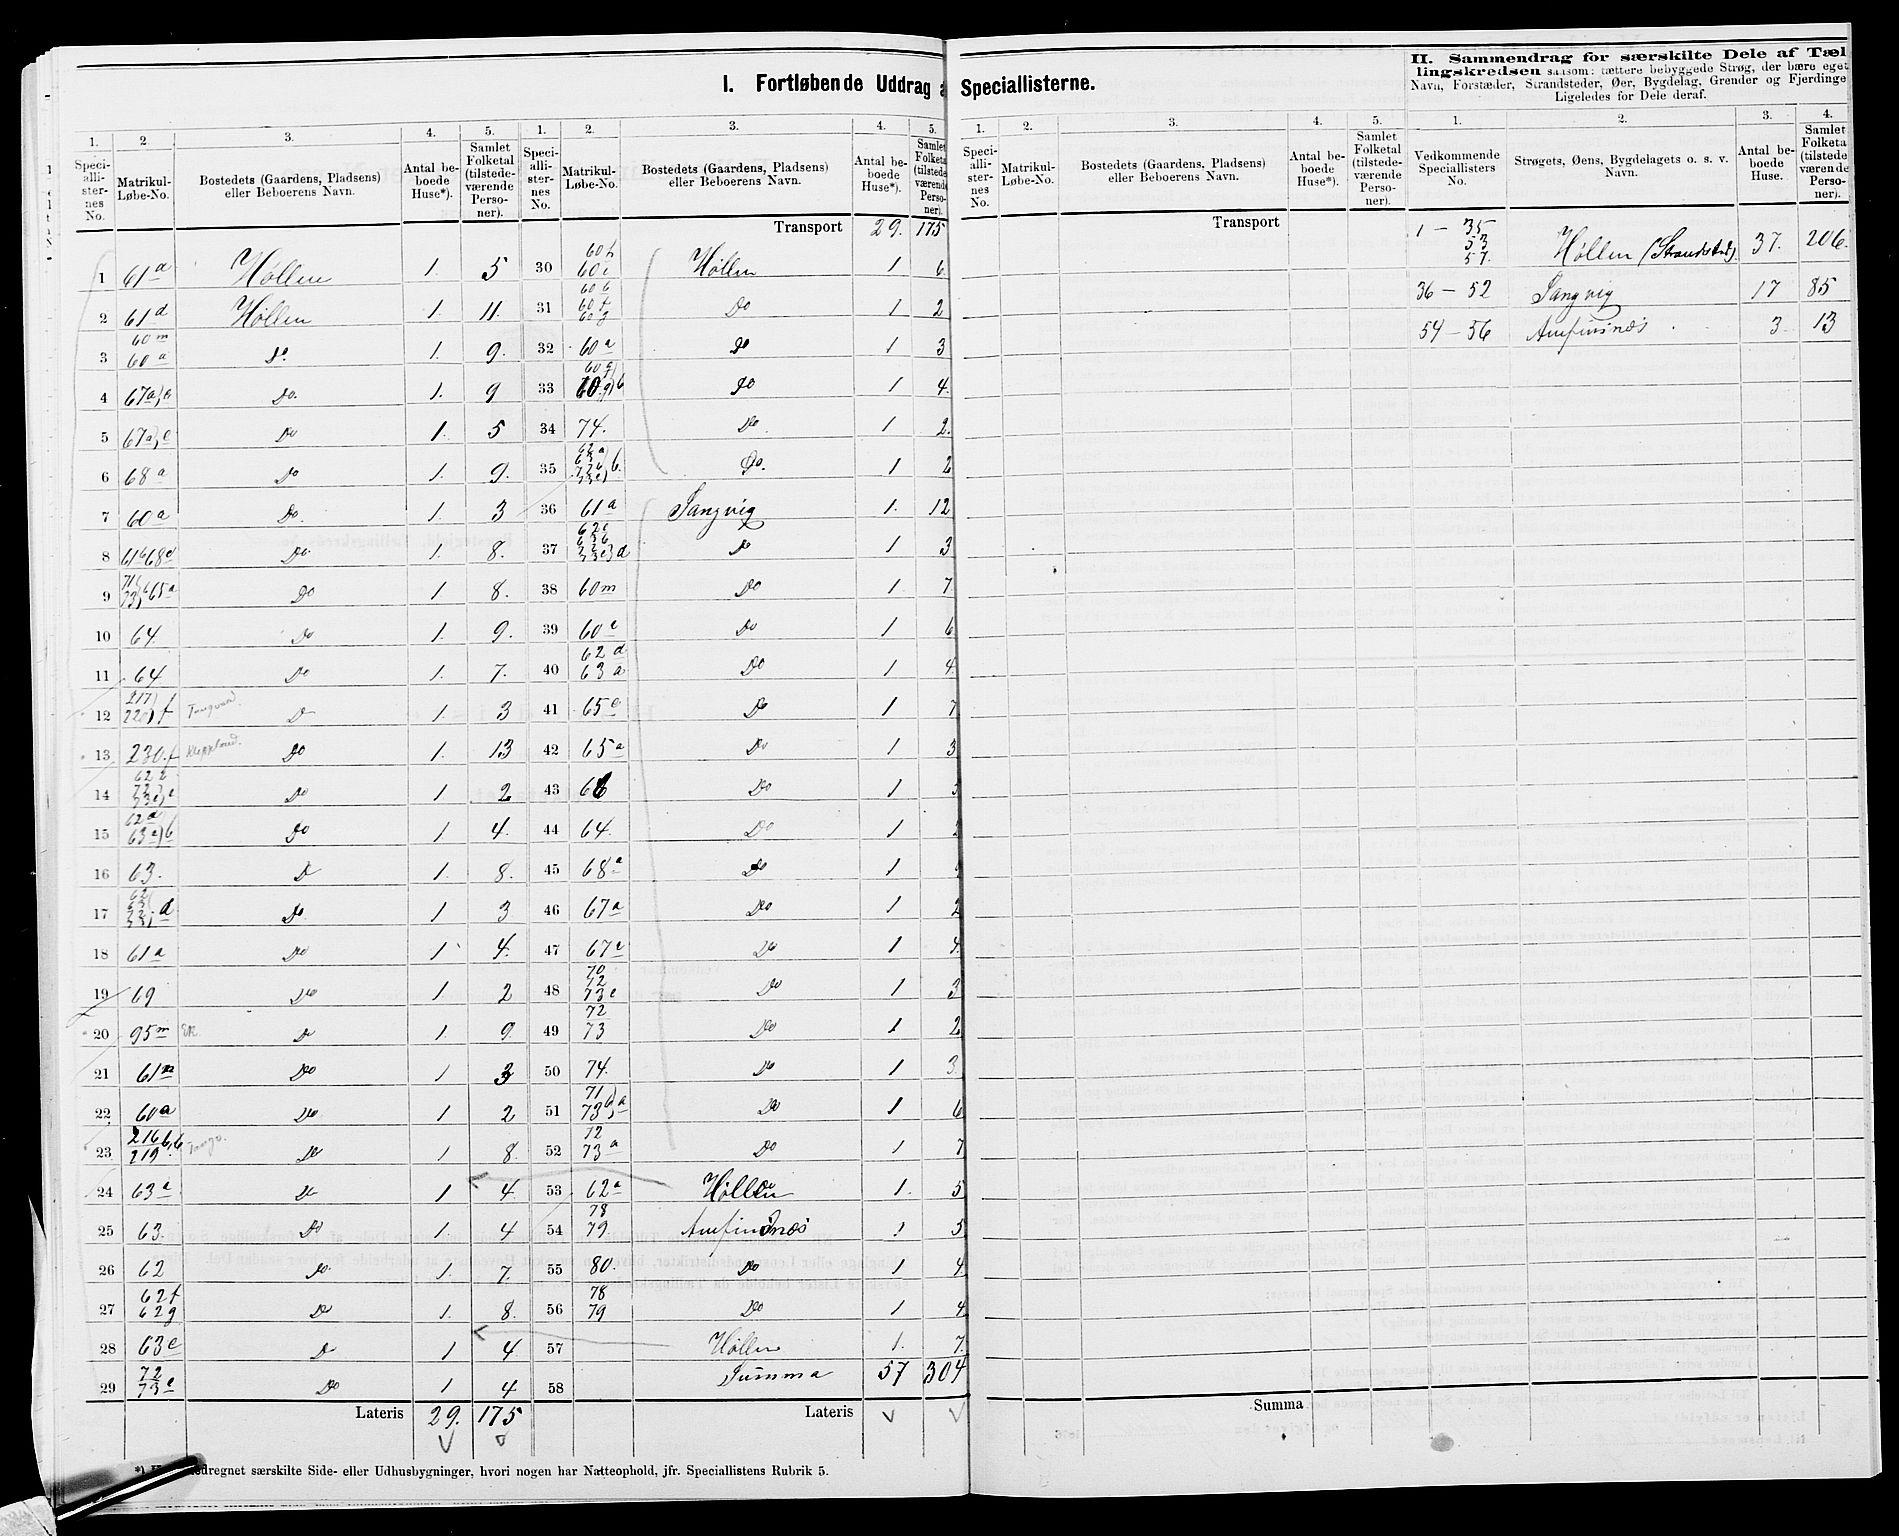 I. Fortløbende Uddrag a Speciallisterne.
II. Sammendrag for særskilte Dele af Tæl
lingskredsen saasom: tættere bebyggede Strøg, der bære eget
Navn, Forstæder, Strandsteder, Øer, Bygdelag, Grender og Fjerdinge
Ligeledes for Dele deraf.
1. 2 3. 4. 5. 1. 2. 3. 4. 5.
Speciallisternes No. Matrikul-Løbe-No. Bostedets (Gaardens, Pladsens) eller Beboerens Navn. Antal beboede Huse*). Samlet Folketal (tilstedeværende Personer). Speciallisternes No. Matrikul-Løbe-No. Bostedets (Gaardens, Pladsens) eller Beboerens Navn. Antal beboede Huse*). Samlet Folketa (tilstedeværende Personer).
Transport 29. 175
1 61a Höllen 1. 5
2 61d Höllen 1. 11.
3 60m 60a Do. 1. 9.
4 67a,c Do. 1. 9
5 67a,e Do 1. 5
6 68a Do 1. 9.
7 60a Do. 1. 3
8 68d Do. 1. 8.
9 65a Do 1 8.
10 64 Do 1. 9.
11 64 Do 1. 7.
12 f Tangvad. D 1. 3
13 230.f Kleppland. Do 1. 13
14 Do 1 2
15 Do 1 4.
16 63. D 1. 8.
17 d Do. 1 3
18 61a Do 1 4.
19 69 Do 1 2
20 95m Ek. D 1. 9
21 61m Do 1 3
22 60a Do 1 2
23 216 219 b,b Tangv. D 1 8
24 63a D 1 4
25 63. Do 1. 4
26 62 Do. 1. 7.
27 62f 62g D 1. 8.
28 63e D 1 4
29 72 73e Do 1 4
Lateris 29. 175
30 60h 60i Höllen 1 6
31 60b 60f 60g Do 1 2
32 60a Do 1 3
33 Do 1 4.
34 74. Do. 1 2.
35 Do. 1 2
36 61a Langvig 1. 12
37 d Do 1 3
38 60m Do 1 7
39 60e Do 1 6
40 62d 63a Do 1 4
41 65e Do 1 7
42 65a Do 1 3
43 66 Do 1
44 64. Do 1
45 68a Do 1
46 67a Do 1 2
47 67e Do 1 4.
48 70 72 73e Do 1 3
49 72 73 Do 1 2
50 74. Do 1 3
51 71 73b,a Do 1 6
52 72 73a Do 1 7
53 62a Höllen 1. 5
54 78 79. Amfinsnæs 1 5
55 80. Do 1 4
56 78 79 Do 1 4
57 Höllen 1. 7.
58 Summa 57 304
Lateris
*) sdregnet særskilte Side- eller Udhusbygninger, hvori nogen har Natteophold, jfr. Speciallistens Rubrik 5.
1. 2. 3. 4. 5. 1. 2. 3. 4.
Speciallisternes No. Matrikul-Løbe-No. Bostedets (Gaardens, Pladsens) eller Beboerens Navn. Antal beboede Huse*). Samlet Folketal (tilstedeværende Personer). Vedkommende Speciallisters No. Strøgets, Øens, Bygdelagets o. s. v. Navn. Antal beboede Huse. Samlet Folketa (tilstedeværende Personer).
Transport
1 – 35 53 57. Höllen (Strandsted). 37. 206.
36 – 52 Langvig 17 85
54 – 56 Amfinsnæs. 3. 13
Summa